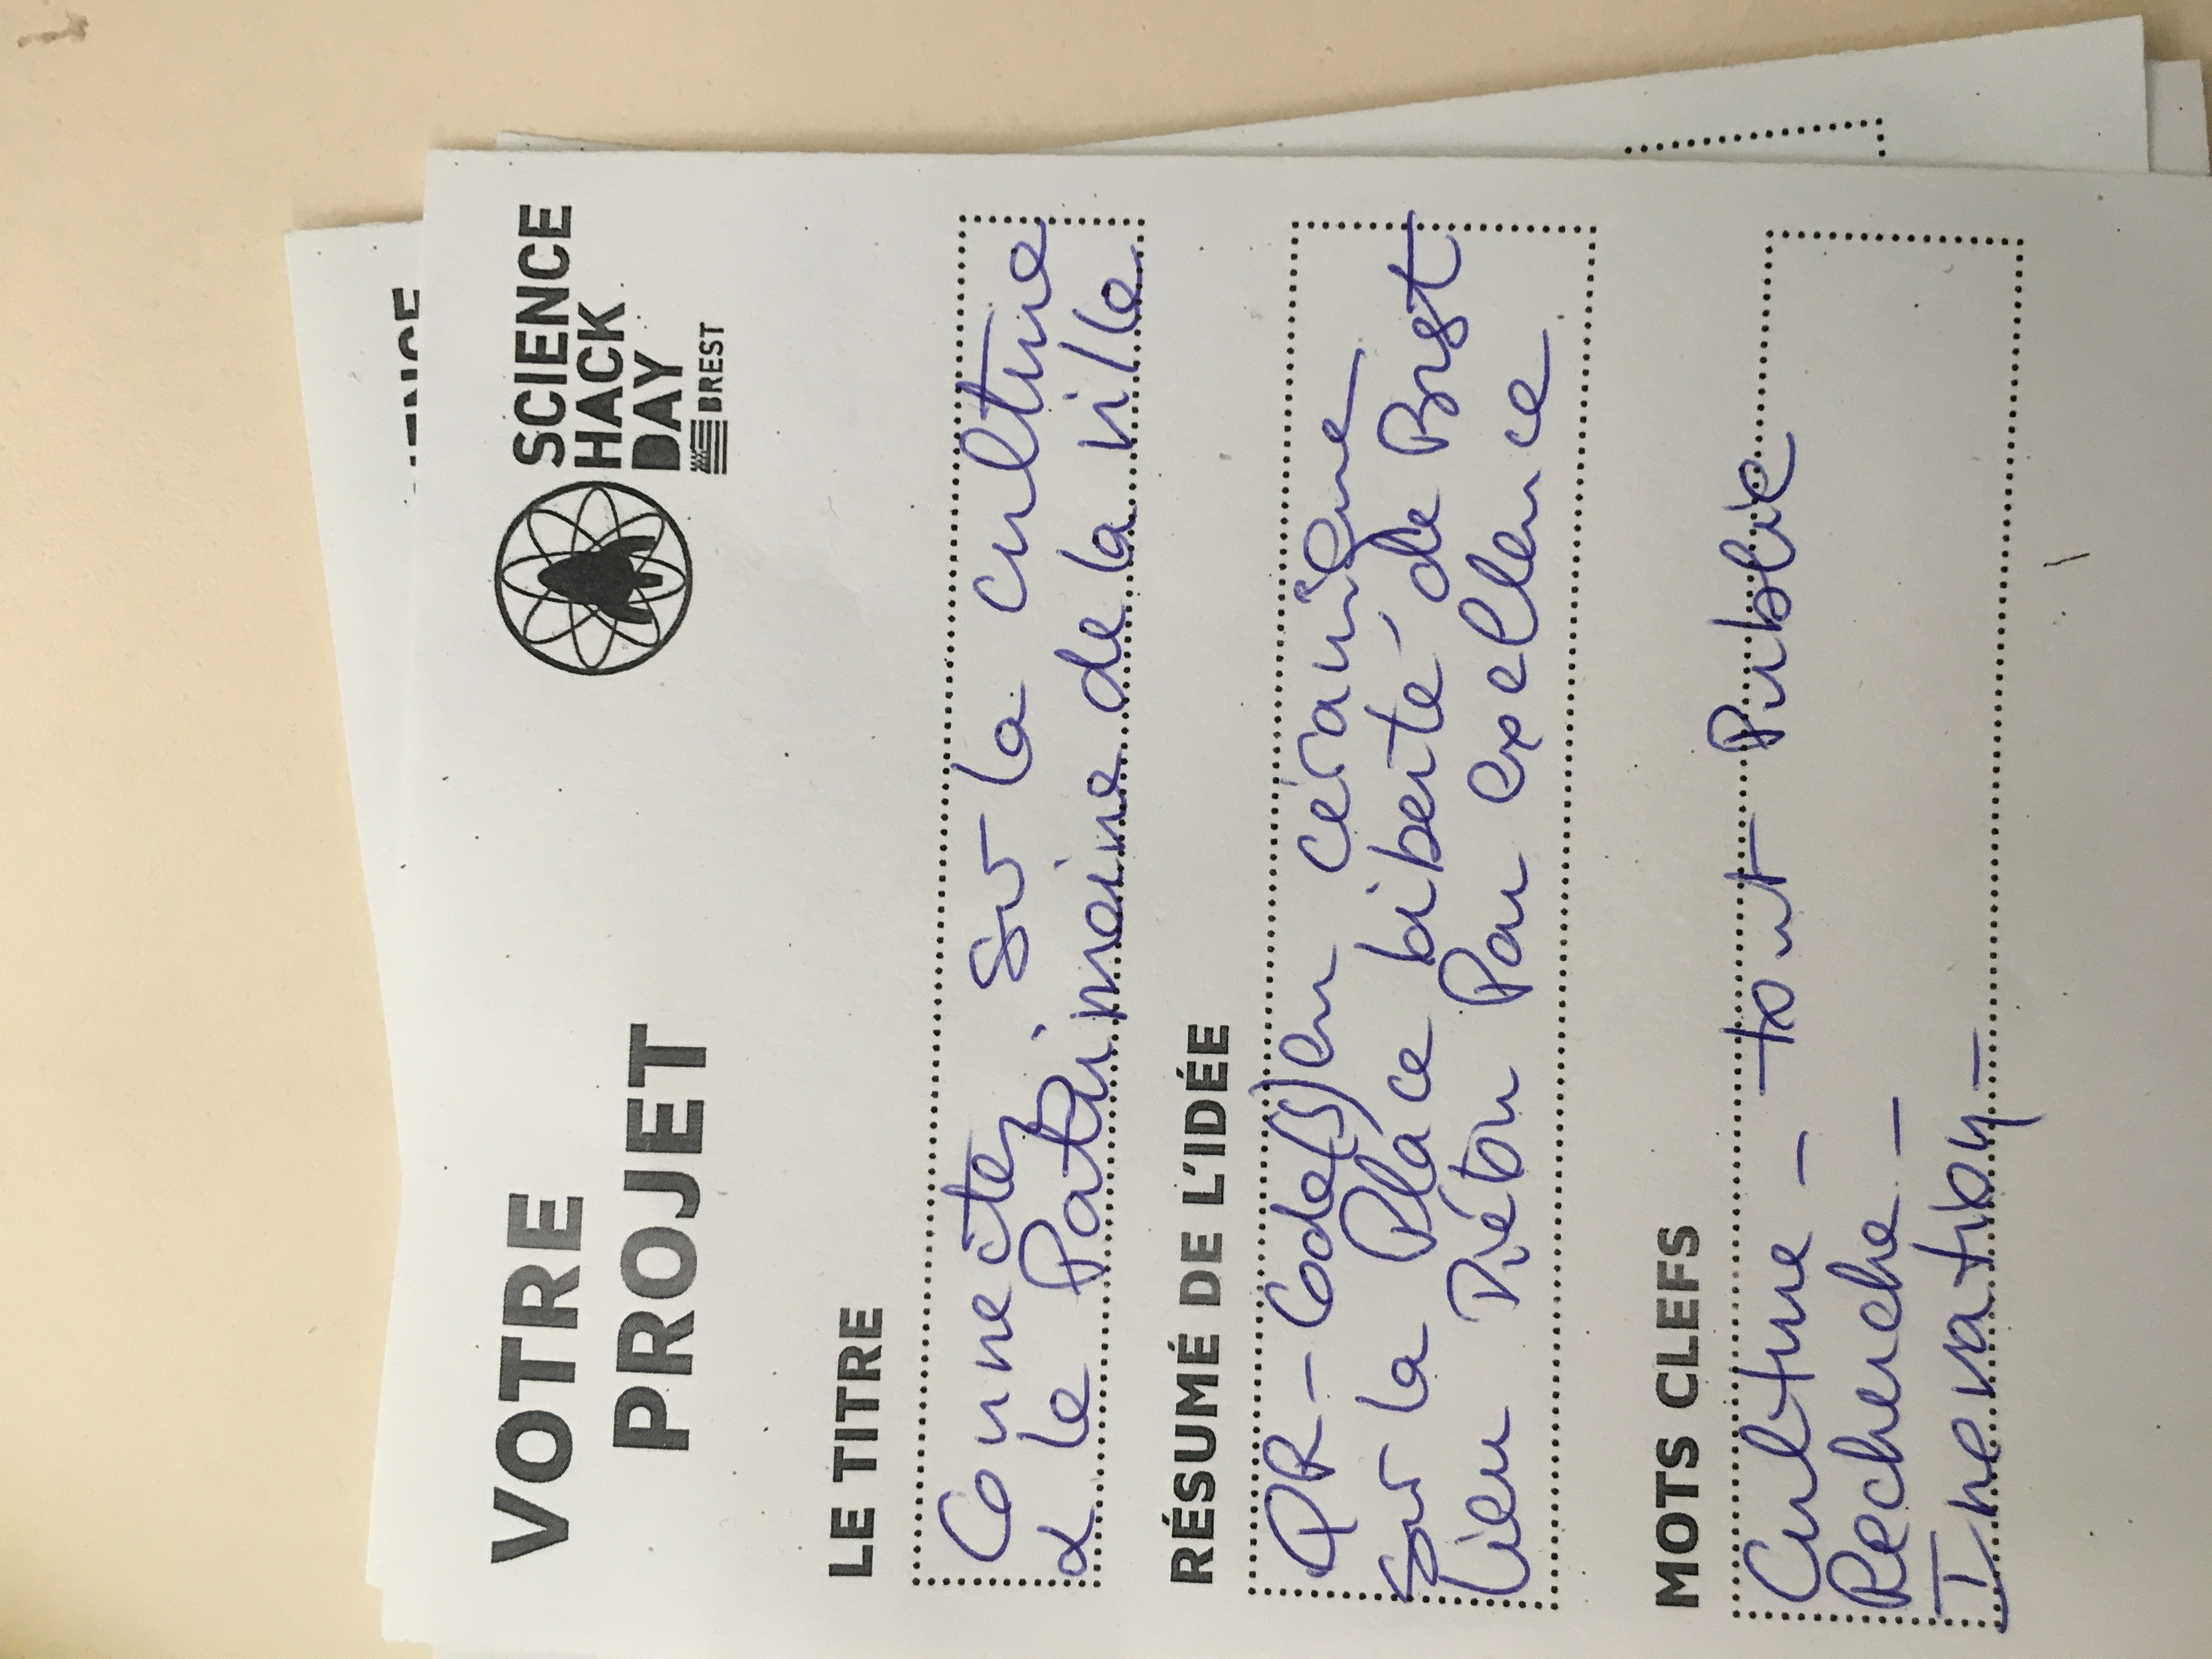 VOTRE
PROJET
SCIENCE
HACK
DAY
BREST
LE TITRE
Connectez sur la culture
& le Patrimoine de la ville
RÉSUMÉ DE L'IDÉE
QR-Code(s) en céramique
sur la Place liberté, de Brest
lieu Piéton Par excellence
MOTS CLEFS
Culture - tout Public
Recherche -
Inovation -